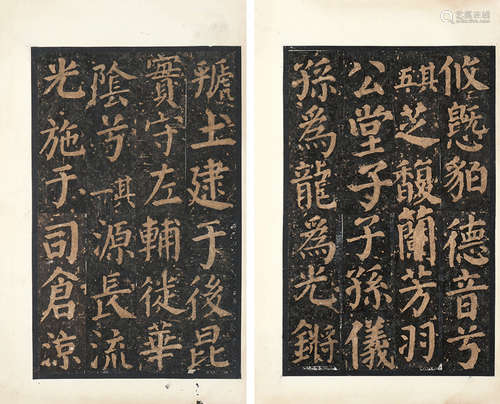 攸塈貊德音兮
其五芝馥蘭芳羽
公堂子子孫儀
孫為龍為光鏘
虢土建于後昆
實守左輔徙華
陰兮其一源長流
光施于司倉涼